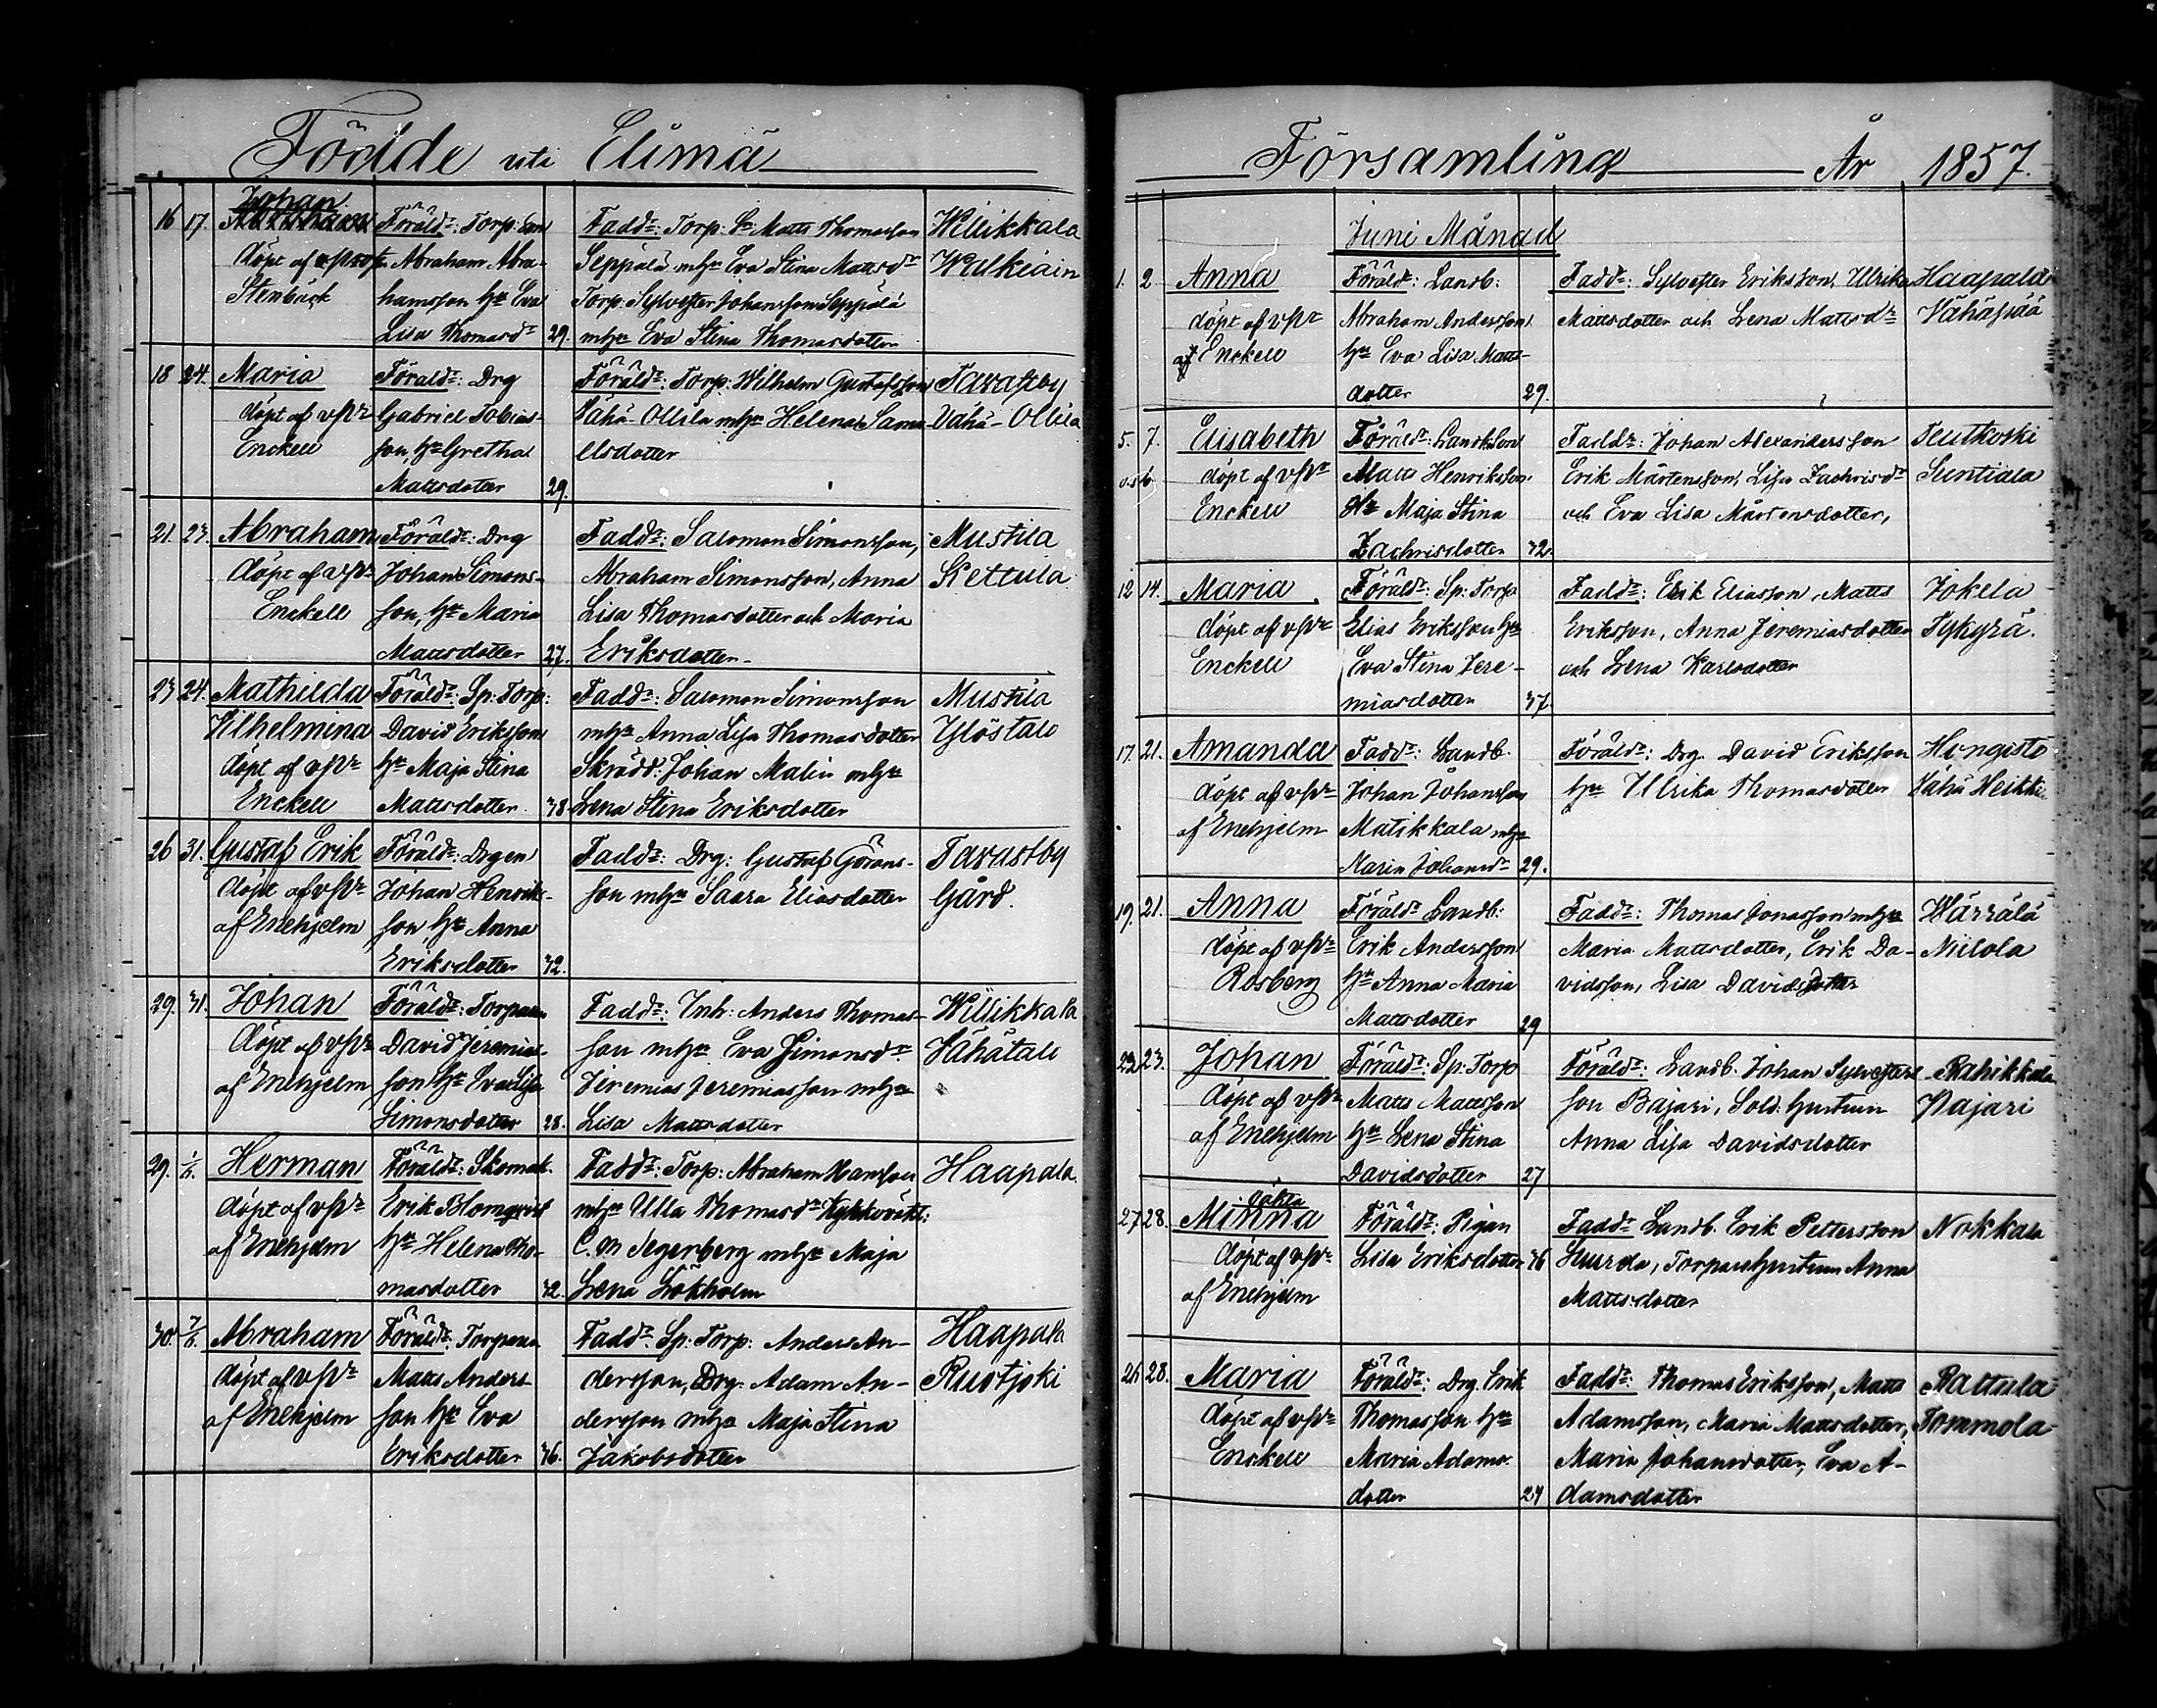 Födde uti Elimä
Johan
16 17. döpt af
Stenbäck
Föräld:r: Torp: Son
Abraham Abra-
hamsson h:u Eva
Lisa Thomasd:r 29.
Fadd:r: Torp: S:n Matts Thomasson
Seppälä m h:u Eva Stina Mattsd:r
Torp: Sylvester Johansson Seppälä
m h:u Eva Stina Thomasdotter
Willikkala
Walkiain
18 24. Maria
döpt af v P:r
Enckell
Föräld:r: Drg
Gabriel Tobias-
son, h:u Gretha
Mattsdotter 29.
Föräld:r: Torp: Wilhelm Gustafsson
Vähä-Ollila m h:u Helena Samu-
elsdotter
Tavastby
Vähä-Ollila
21. 23. Abraham
döpt af v P:r
Enckell
Föräld:r: Drg
Johan Simons-
son, h:u Maria
Mattsdotter 27.
Fadd:r: Salomon Simonsson,
Abraham Simonsson, Anna
Lisa Thomasdotter och Maria
Eriksdotter
Mustila
Kettula
23 24. Mathilda
Wilhelmina
döpt af v P:r
Enckell
Föräld:r: Sp: Torp:
David Eriksson
h:u Maja Stina
Mattsdotter 38
Fadd:r: Salomon Simonsson
m h:u Anna Lisa Thomasdotter
Skrädd: Johan Malin m h:u
Lena Stina Eriksdotter
Mustila
Ylöstalo
26 31. Gustaf Erik
döpt af v P:r
af Enehjelm
Föräld:r: Drgen
Johan Henriks-
son h:u Anna
Eriksdotter 32.
Fadd:r: Drg: Gustaf Görans-
son m h:u Saara Eliasdotter
Tavastby
Gård.
29. 31. Johan
döpt af v P:r
af Enehjelm
Föräld:r: Torparen
David Jeremias-
son h:u Eva Lisa
Simonsdotter 28.
Fadd:r: Inh: Anders Thomas-
son m h:u Eva Simonsd:r
Jeremias Jeremiasson m h:u
Lisa Mattsdotter
Willikkala
Vähätalo
29. 1/6. Herman
döpt af v P:r
af Enehjelm
Föräld:r: Skomak.
Erik Blomqvist
h:u Helena Tho-
masdotter 32.
Fadd:r: Torp: Abraham Hansson
m h:u Ulla Thomasd:r Kyrkovakt:
C. M Segerberg m h:u Maja
Lena Lökholm
Haapala
30. 7/6. Abraham
döpt af v P:r
af Enehjelm
Föräld:r: Torparen
Matts Anders-
son h:u Eva
Eriksdotter 36.
Fadd:r: Sp: Torp: Anders An-
dersson, Drg. Adam An-
dersson m h:u Maja Stina
Jakobsdotter
Haapala
Ruotjoki
Församling År 1857.
Juni Månad
1. 2 Anna
döpt af v P:r
af Enckell
Föräld:r: Landb:
Abraham Andersson
h:u Eva Lisa Matts-
dotter 29.
Fadd:r: Sylvester Eriksson, Ulrika
Mattsdotter och Lena Mattsd:r
Haapala
Vähäpää
5. 7. Elisabeth
döpt af v P:r
Enckell
Föräld:r: Landb. Son
Matts Henriksson
h:u Maja Stina
Zachrisdotter 32.
Fadd:r: Johan Alexandersson
Erik Mårtensson, Lisa Zachrisd:r
och Eva Lisa Mårtensdotter,
Peutkoski
Suntiala
12 14. Maria
döpt af v P:r
Enckell
Föräld:r: Sp: Torp
Elias Eriksson h:u
Eva Stina Jere-
miasdotter 37.
Fadd:r: Erik Eliasson, Matts
Eriksson, Anna Jeremiasdotter
och Lena Karlsdotter
Jokela
17. 21. Amanda
döpt af v P:r
af Enehjelm
Fadd:r: Landb.
Johan Johansson
Matikkala m h:u
Maria Johansd:r 29.
Föräld:r: Drg. David Eriksson
h:u Ulrika Thomasdotter
Hongisto
Vähä Heikki
19. 21. Anna
döpt af v P:r
Rosberg
Föräld:r Landb:
Erik Andersson
h:u Anna Maria
Mattsdotter 29
Fadd:r: Thomas Jonasson m h:u
Maria Mattsdotter, Erik Da-
vidsson, Lisa Davidsdotter
Wärrälä
Niilola
23. Johan
döpt af v P:r
af Enehjelm
Föräld:r: Sp: Torp
Matts Mattsson
h:u Lena Stina
Davidsdotter 27
Föräld:r: Landb. Johan Sylvesters
son Bajari, Sold: hustrun
Anna Lisa Davidsdotter
Rahikkala
Pajari
27. 28. Minna
oäkta
döpt af v P:r
af Enehjelm
Föräld:r: Pigan
Lisa Eriksdotter 36
Fadd:r Landb. Erik Pettersson
Torpare hustrun Anna
Mattsdotter
Nokkala
26 28. Maria
döpt af v P:r
Enckell
Föräld:r: Drg. Erik
Thomasson h:u
Maria Adams-
dotter 24
Fadd:r: Thomas Eriksson, Matts
Adamsson, Maria Mattsdotter,
Maria Johansdotter, Eva A-
damsdotter
Rattula
Tommola